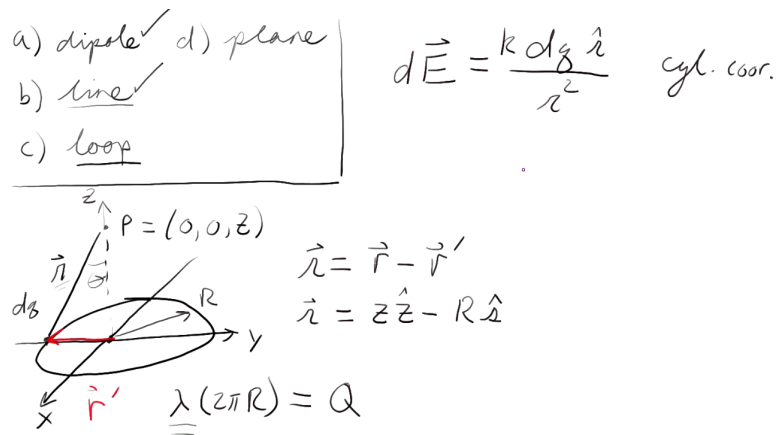 a) dipole✓ d) plane
b) line✓
c) loop
dE⃗ = k dq r̂ / r²
cyl. coor.
z
P = (0, 0, z)
r⃗
θ
dq
R
y
x
r⃗′
r⃗ = r⃗ − r⃗′
r⃗ = zẑ − Rŝ
λ(2πR) = Q